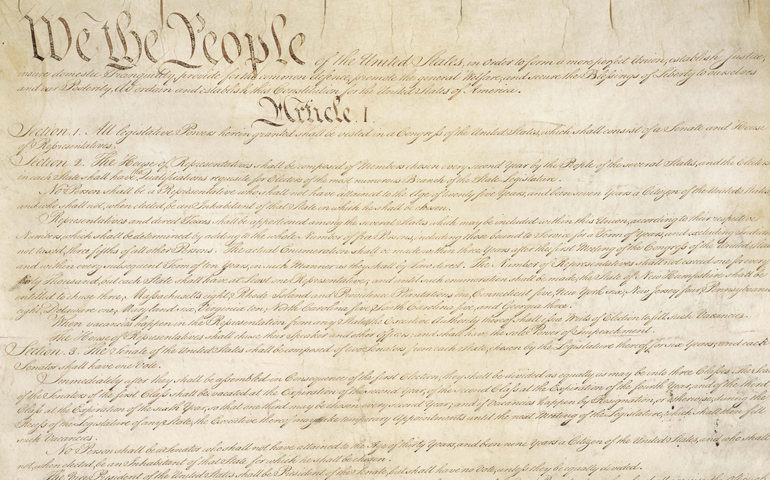 We the People of the United States, in Order to form a more perfect Union, establish Justice,
insure domestic Tranquility, provide for the common defence, promote the general Welfare, and secure the Blessings of Liberty to ourselves
and our Posterity, do ordain and establish this Constitution for the United States of America.
Article. I.
Section. 1. All legislative Powers herein granted shall be vested in a Congress of the United States, which shall consist of a Senate and House
of Representatives.
Section. 2. The House of Representatives shall be composed of Members chosen every second Year by the People of the several States, and the Electors
in each State shall have the Qualifications requisite for Electors of the most numerous Branch of the State Legislature.
No Person shall be a Representative who shall not have attained to the Age of twenty five Years, and been seven Years a Citizen of the United States,
and who shall not, when elected, be an Inhabitant of that State in which he shall be chosen.
Representatives and direct Taxes shall be apportioned among the several States which may be included within this Union, according to their respective
Numbers, which shall be determined by adding to the whole Number of free Persons, including those bound to Service for a Term of Years, and excluding Indians
not taxed, three fifths of all other Persons. The actual Enumeration shall be made within three Years after the first Meeting of the Congress of the United States,
and within every subsequent Term of ten Years, in such Manner as they shall by Law direct. The Number of Representatives shall not exceed one for every
thirty Thousand, but each State shall have at Least one Representative; and until such enumeration shall be made, the State of New Hampshire shall be
entitled to chuse three, Massachusetts eight, Rhode-Island and Providence Plantations one, Connecticut five, New-York six, New Jersey four, Pennsylvania
eight, Delaware one, Maryland six, Virginia ten, North Carolina five, South Carolina five, and Georgia three.
When vacancies happen in the Representation from any State, the Executive Authority thereof shall issue Writs of Election to fill such Vacancies.
The House of Representatives shall chuse their Speaker and other Officers; and shall have the sole Power of Impeachment.
Section. 3. The Senate of the United States shall be composed of two Senators from each State, chosen by the Legislature thereof, for six Years; and each
Senator shall have one Vote.
Immediately after they shall be assembled in Consequence of the first Election, they shall be divided as equally as may be into three Classes. The Seats
of the Senators of the first Class shall be vacated at the Expiration of the second Year, of the second Class at the Expiration of the fourth Year, and of the third
Class at the Expiration of the sixth Year, so that one third may be chosen every second Year; and if Vacancies happen by Resignation, or otherwise, during the
Recess of the Legislature of any State, the Executive thereof may make temporary Appointments until the next Meeting of the Legislature, which shall then fill
such Vacancies.
No Person shall be a Senator who shall not have attained to the Age of thirty Years, and been nine Years a Citizen of the United States, and who shall
not, when elected, be an Inhabitant of that State for which he shall be chosen.
The Vice President of the United States shall be President of the Senate, but shall have no Vote, unless they be equally divided.